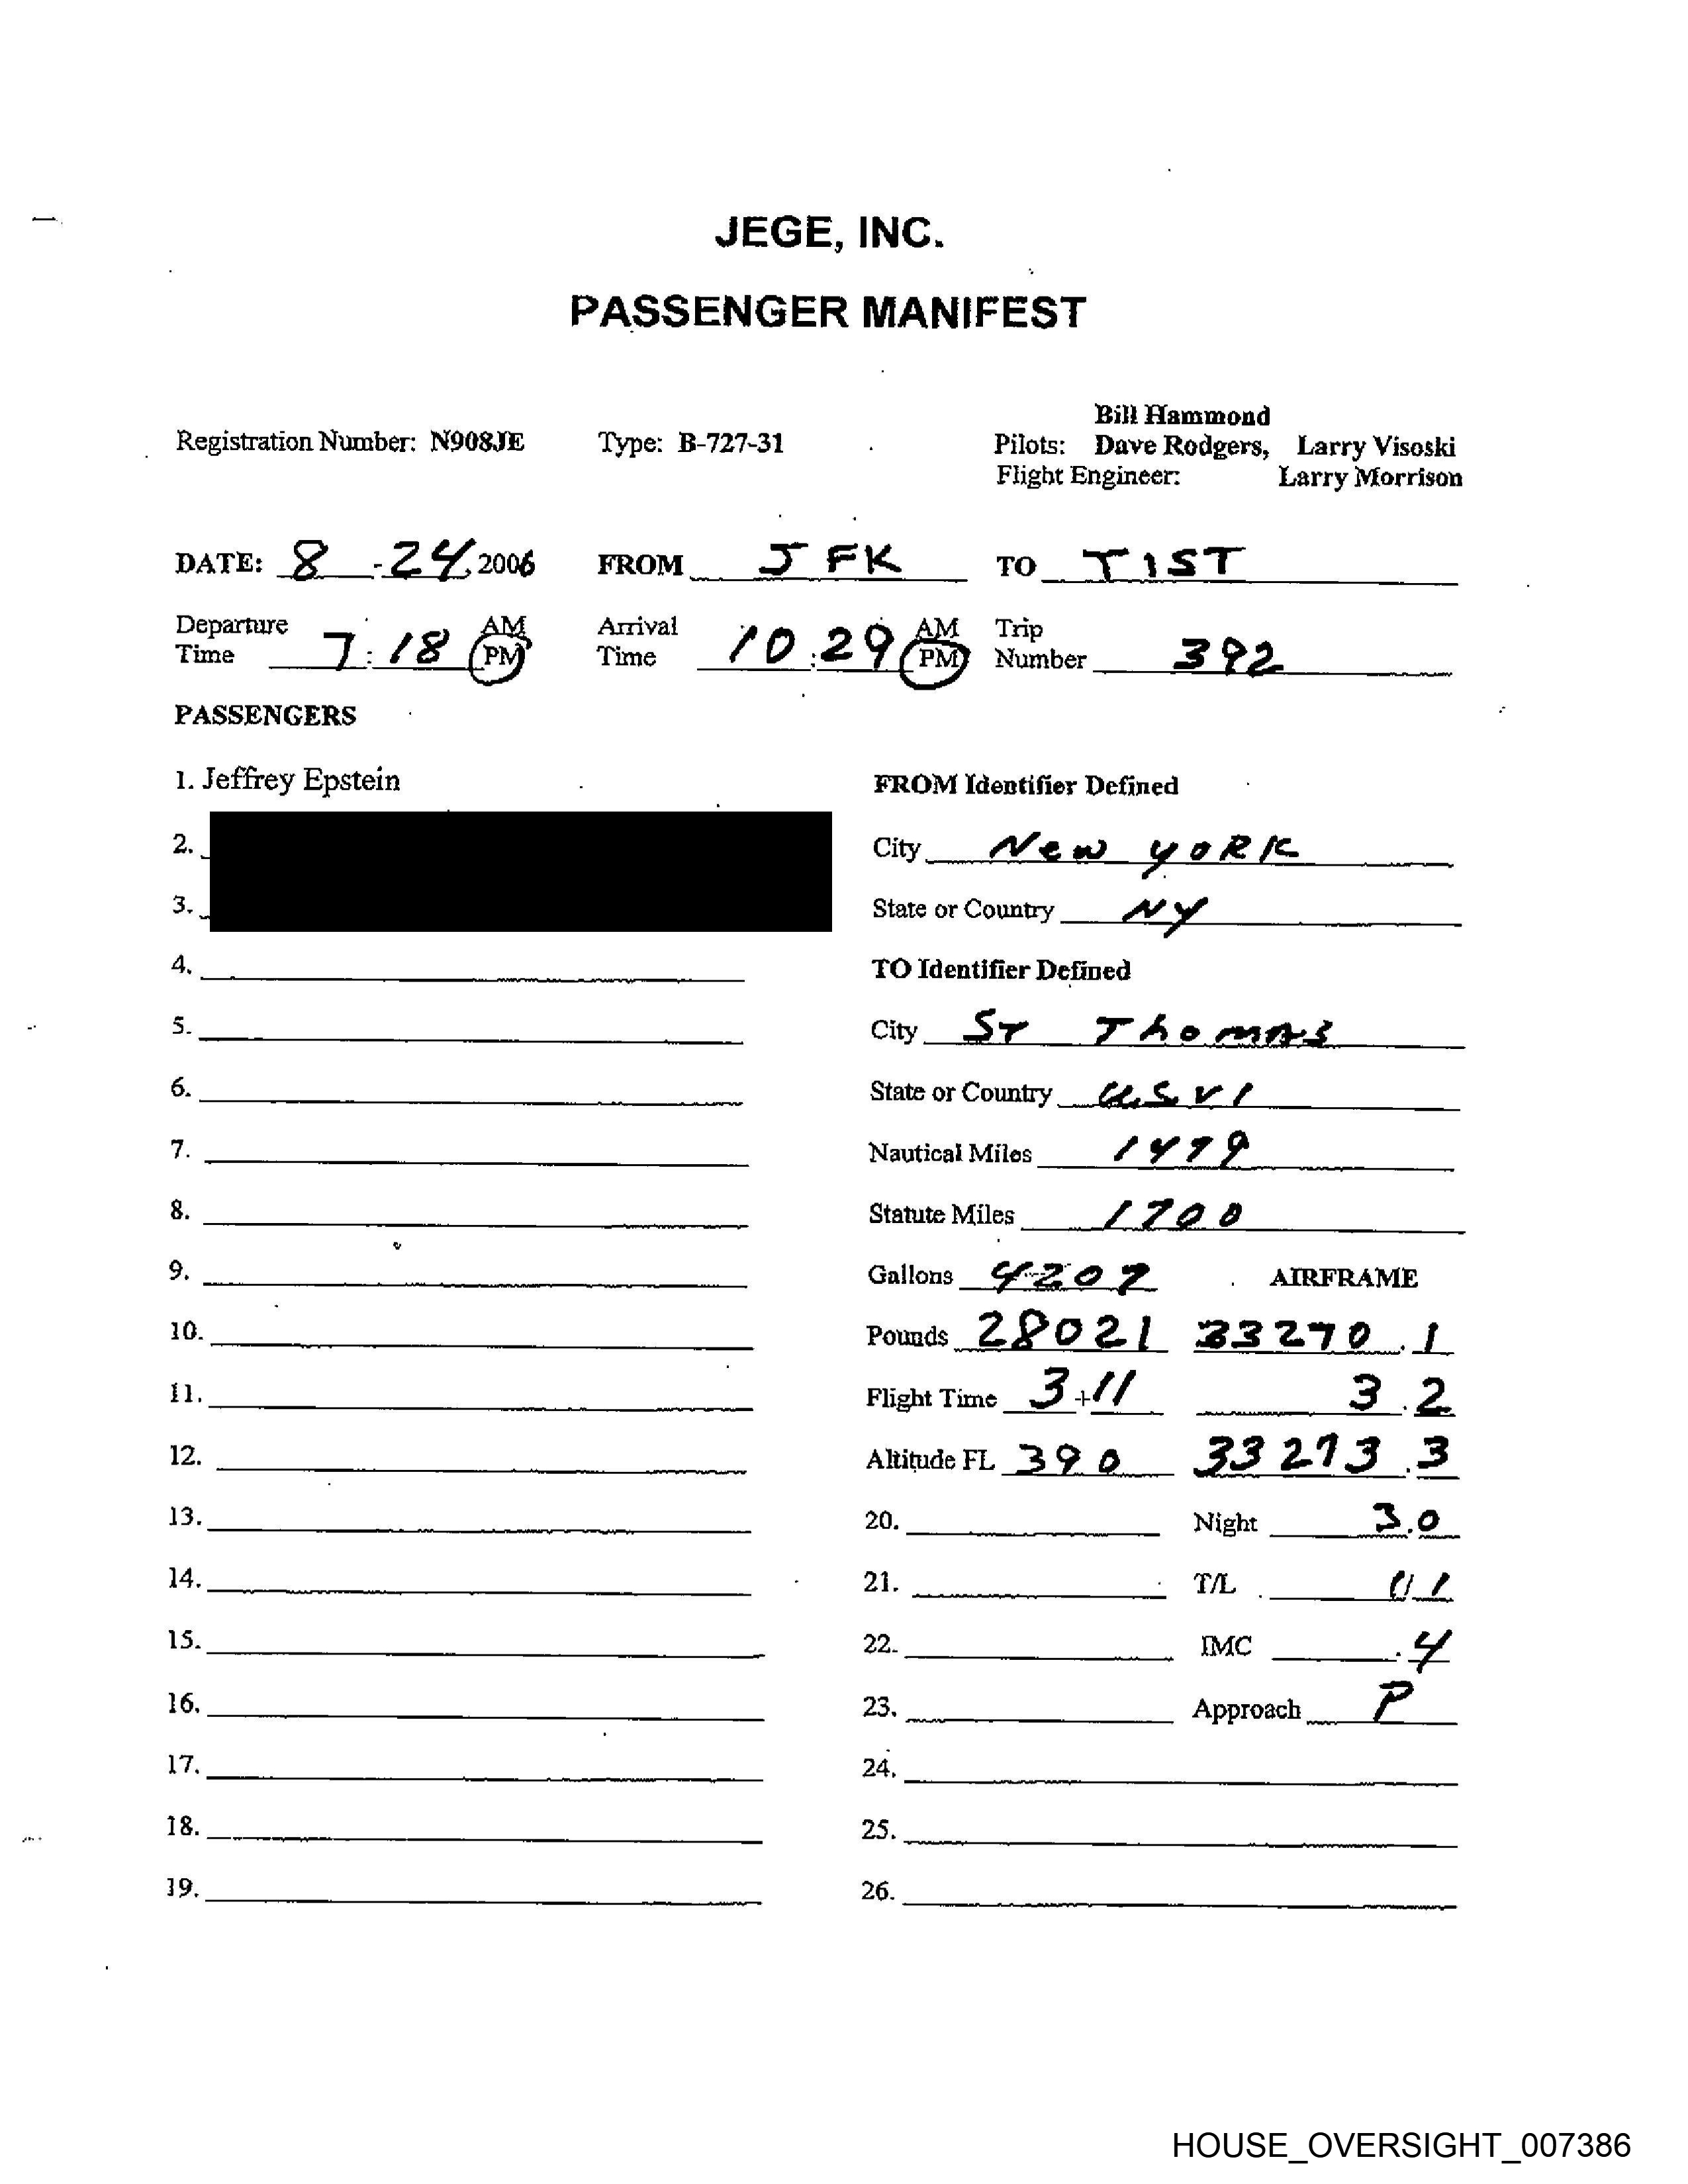 JEGE, INC.
PASSENGER MANIFEST
Bill Hammond
Registration Number: N908JE Type: B-727-31 Pilots: Dave Rodgers, Larry Visoski
Flight Engineer: Larry Morrison
DATE: 8 - 24, 2006 FROM JFK TO TIST
Departure Time 7:18 AM PM Arrival Time 10:29 AM PM Trip Number 392
PASSENGERS
1. Jeffrey Epstein FROM Identifier Defined
2. City New YORK
3. State or Country NY
4. TO Identifier Defined
5. City ST ThomAS
6. State or Country USVI
7. Nautical Miles 1479
8. Statute Miles 1700
9. Gallons 4207 AIRFRAME
10. Pounds 28021 33270.1
11. Flight Time 3+11 3.2
12. Altitude FL 390 33273.3
13. 20. Night 3.0
14. 21. T/L 1/1
15. 22. IMC .4
16. 23. Approach P
17. 24.
18. 25.
19. 26.
HOUSE_OVERSIGHT_007386